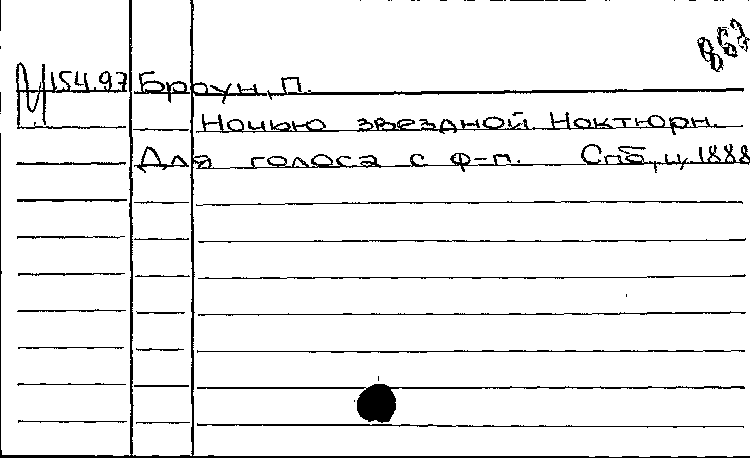 867
М154.97 Броун, П.
Ночью звездной. Ноктюрн.
Для голоса с ф-п. Спб, ц. 1888